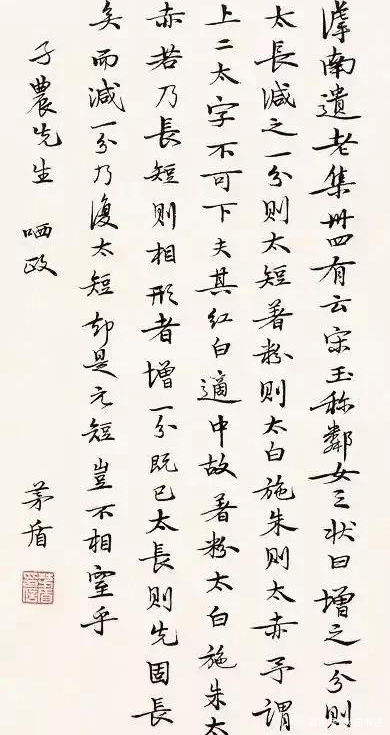 滹南遗老集卅四有云宋玉称鄰女之状曰增之一分則
太長減之一分則太短著粉則太白施朱則太赤予謂
上二太字不可下夫其红白適中故著粉太白施朱太
赤若乃長短則相形者增一分既已太長則先固長
矣而減一分乃復太短却是元短豈不相窒乎
子農先生 哂政
茅盾